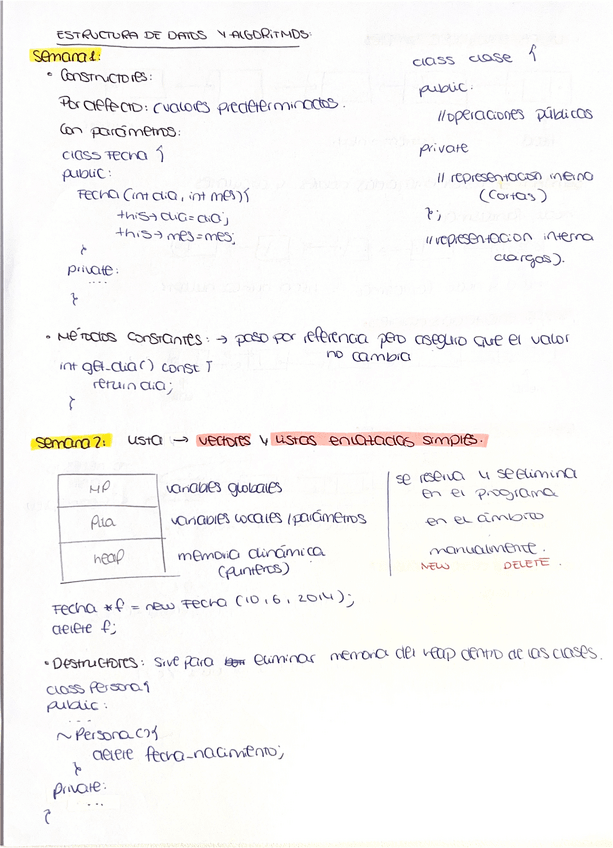 ESTRUCTURA DE DATOS Y ALGORITMOS:
Semana 1:
• Constructores:
Por defecto: (valores predeterminados.
Con parámetros:
class Fecha {
public:
Fecha (int dia, int mes){
this→dia=dia;
this→mes=mes;
}
private:
....
}
class clase {
public:
//operaciones públicas
private
// representacion interna
(cortas)
};
//representacion interna
(largas).
• Métodos constantes: → paso por referencia pero aseguro que el valor
no cambia
int get_dia() const {
return dia;
}
Semana 2: Lista → vectores y listas enlazadas simples.
MP variables globales se reserva y se elimina
en el programa
Pila variables locales/parámetros en el ámbito
heap memoria dinámica manualmente.
(punteros) NEW DELETE.
Fecha *f = new Fecha (10, 6, 2014);
delete f;
• Destructores: sive para eliminar memoria del heap dentro de las clases.
class Persona{
public:
...
~Persona(){
delete fecha_nacimiento;
}
private:
...
}